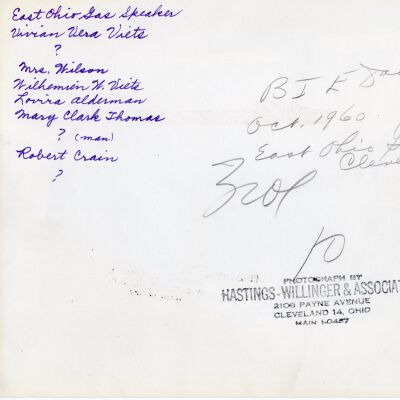 East Ohio Gas Speaker
Vivian Vera Viets
?
Mrs. Wilson
Wilhemien W. Viets
Lovira Alderman
Mary Clark Thomas
? (man)
Robert Crain
?
B I E Da
Oct. 1960
East Ohio G
Cleve
10
PHOTOGRAPH BY
HASTINGS-WILLINGER & ASSOCIAT
2108 PAYNE AVENUE
CLEVELAND 14, OHIO
MAIN 1-0457